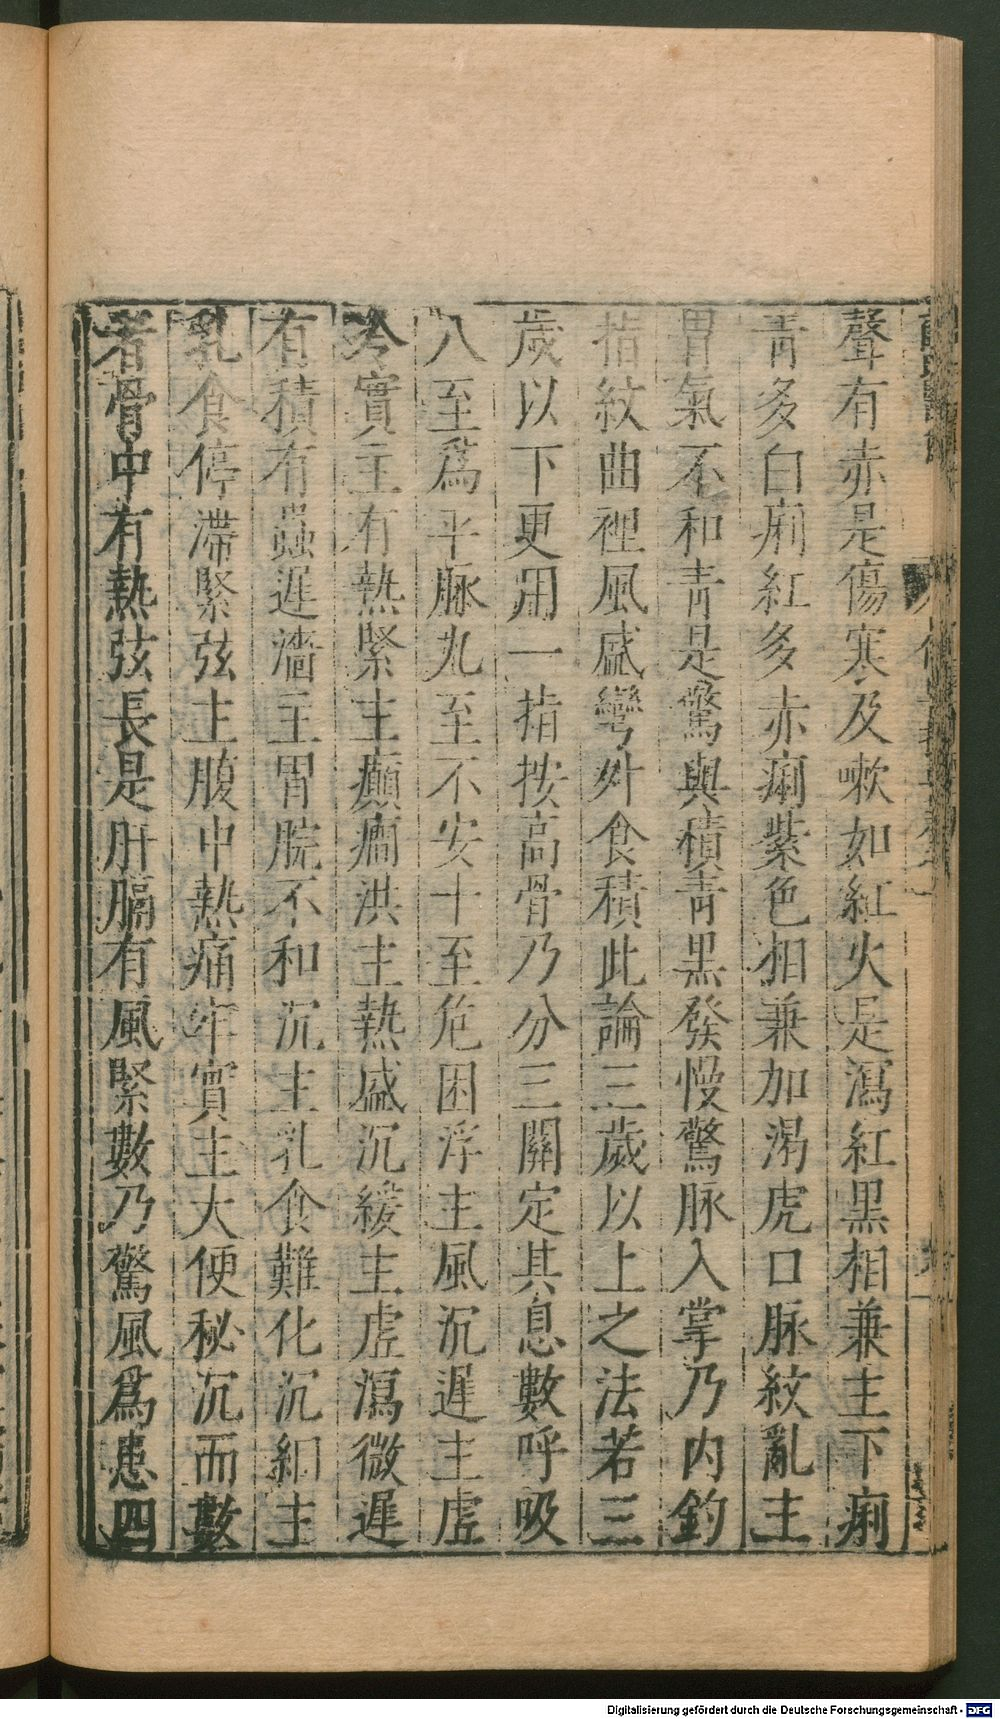 聲有赤是傷寒及嗽如紅火是瀉紅黑相兼主下痢
青多白痢紅多赤痢紫色相兼加渴虎口脉紋亂主
胃氣不和青是驚與積青黑發慢驚脉入掌乃内釣
指紋曲裡風盛彎外食積此論三歲以上之法若三
歲以下更用一指按高骨乃分三關定其息數呼吸
八至爲平脉九至不安十至危困浮主風沉遲主虛
冷實主有熱緊主癲癇洪主熱盛沉緩主虛瀉微遲
有積有蟲遲濇主胃脘不和沉主乳食難化沉細主
乳食停滯緊弦主腹中熱痛牢實主大便秘沉而數
者骨中有熱弦長是肝膈有風緊數乃驚風爲患四
Digitalisierung gefördert durch die Deutsche Forschungsgemeinschaft - DFG